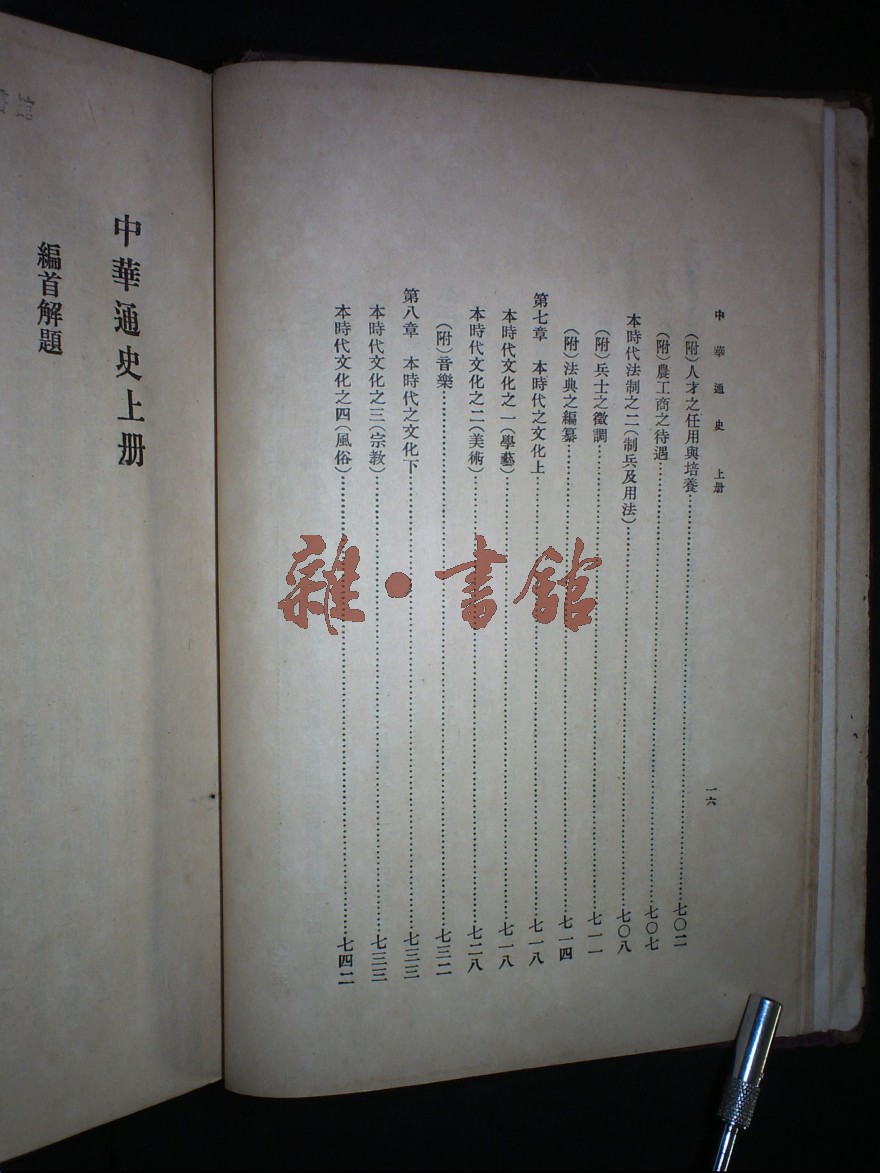 中華通史 上册
(附)人才之任用與培養……七〇二
(附)農工商之待遇……七〇七
本時代法制之二(制兵及用法)……七〇八
(附)兵士之徵調……七一一
(附)法典之編纂……七一四
第七章 本時代之文化上……七一八
本時代文化之一(學藝)……七一八
本時代文化之二(美術)……七二八
(附)音樂……七三二
第八章 本時代之文化下……七三三
本時代文化之三(宗教)……七三三
本時代文化之四(風俗)……七四二
一六
中華通史上册
編首解題
雜·書館